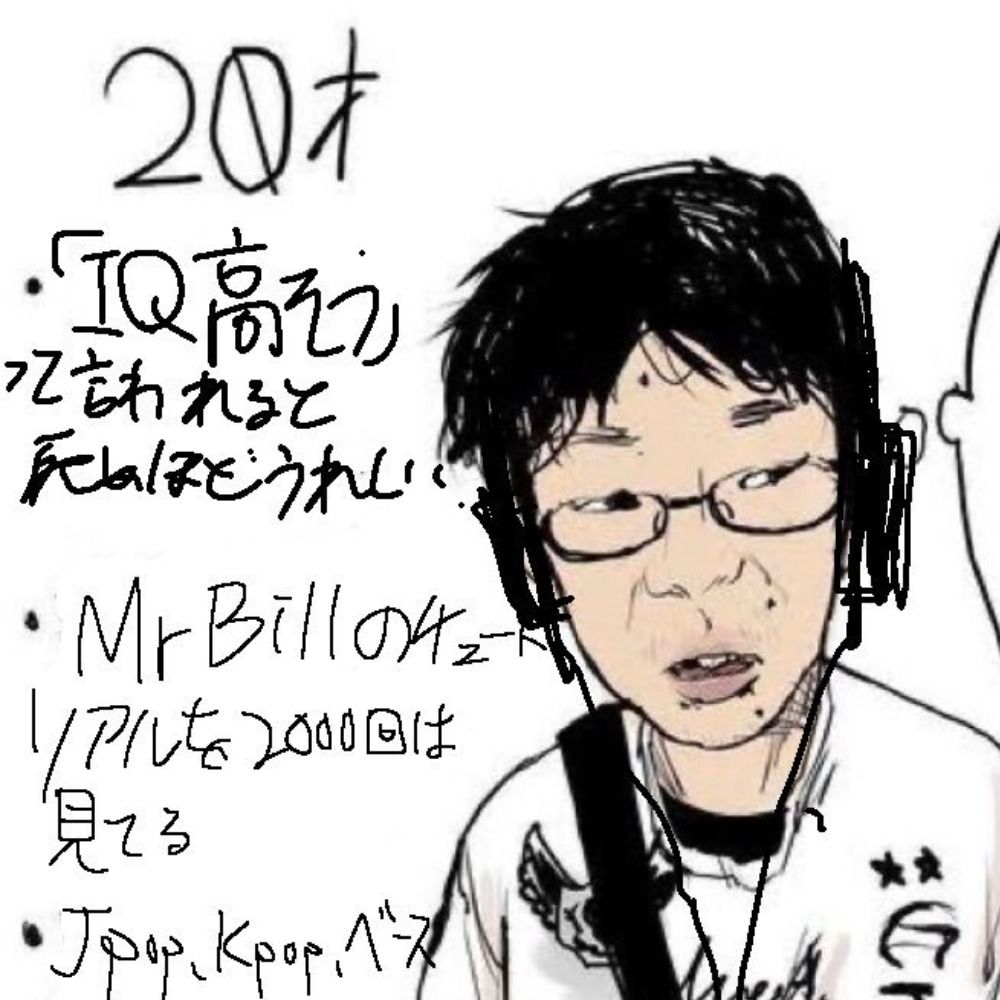 20才
・「IQ高そう」
って言われると
死ぬほどうれしい。
・Mr Billのチュート
リアルを2000回は
見てる
・Jpop、Kpop、ベース